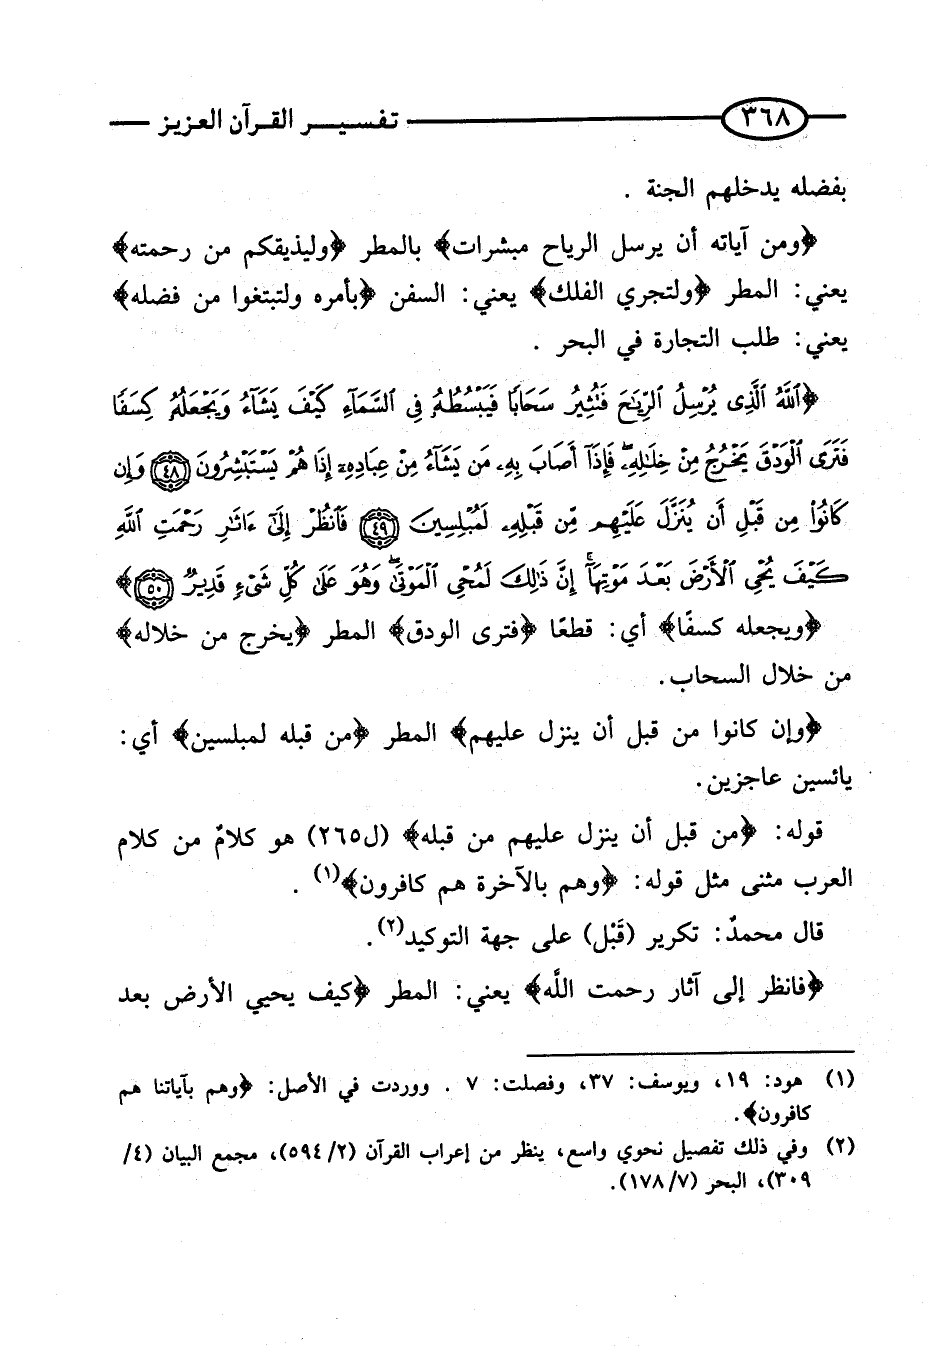 ٣٦٨ تفسير القرآن العزيز
بفضله يدخلهم الجنة .
﴿ومن آياته أن يرسل الرياح مبشرات﴾ بالمطر ﴿وليذيقكم من رحمته﴾
يعني: المطر ﴿ولتجري الفلك﴾ يعني: السفن ﴿بأمره ولتبتغوا من فضله﴾
يعني: طلب التجارة في البحر .
﴿ٱللَّهُ ٱلَّذِى يُرْسِلُ ٱلرِّيَٰحَ فَتُثِيرُ سَحَابًا فَيَبْسُطُهُۥ فِى ٱلسَّمَآءِ كَيْفَ يَشَآءُ وَيَجْعَلُهُۥ كِسَفًا
فَتَرَى ٱلْوَدْقَ يَخْرُجُ مِنْ خِلَٰلِهِۦۖ فَإِذَآ أَصَابَ بِهِۦ مَن يَشَآءُ مِنْ عِبَادِهِۦٓ إِذَا هُمْ يَسْتَبْشِرُونَ ٤٨ وَإِن
كَانُوا۟ مِن قَبْلِ أَن يُنَزَّلَ عَلَيْهِم مِّن قَبْلِهِۦ لَمُبْلِسِينَ ٤٩ فَٱنظُرْ إِلَىٰٓ ءَاثَٰرِ رَحْمَتِ ٱللَّهِ
كَيْفَ يُحْىِ ٱلْأَرْضَ بَعْدَ مَوْتِهَآۚ إِنَّ ذَٰلِكَ لَمُحْىِ ٱلْمَوْتَىٰۖ وَهُوَ عَلَىٰ كُلِّ شَىْءٍ قَدِيرٌ ٥٠﴾
﴿ويجعله كسفًا﴾ أي: قطعًا ﴿فترى الودق﴾ المطر ﴿يخرج من خلاله﴾
من خلال السحاب.
﴿وإن كانوا من قبل أن ينزل عليهم﴾ المطر ﴿من قبله لمبلسين﴾ أي:
يائسين عاجزين.
قوله: ﴿من قبل أن ينزل عليهم من قبله﴾ (ل٢٦٥) هو كلامٌ من كلام
العرب مثنى مثل قوله: ﴿وهم بالآخرة هم كافرون﴾(١) .
قال محمدٌ: تكرير (قَبْل) على جهة التوكيد(٢).
﴿فانظر إلى آثار رحمت اللَّه﴾ يعني: المطر ﴿كيف يحيي الأرض بعد
(١) هود: ١٩، ويوسف: ٣٧، وفصلت: ٧ . ووردت في الأصل: ﴿وهم بآياتنا هم
كافرون﴾.
(٢) وفي ذلك تفصيل نحوي واسع، ينظر من إعراب القرآن (٢/ ٥٩٤)، مجمع البيان (٤/
٣٠٩)، البحر (٧/ ١٧٨).